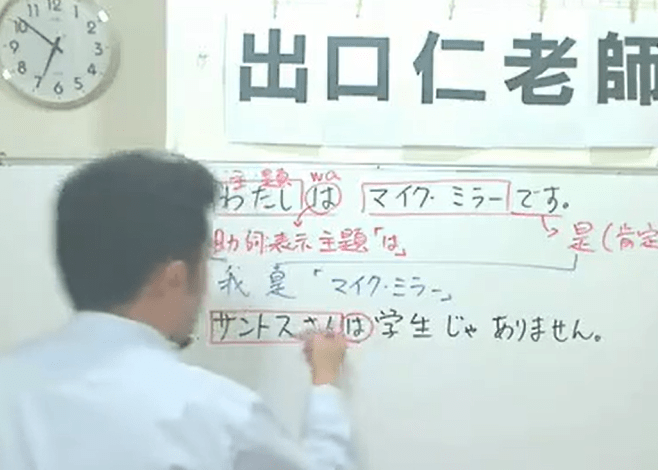 12
11 1
10 2
9 3
8 4
7 6 5
出口仁老師
主題 wa
わたしは マイク・ミラーです。
助詞表示主題「は」 是(肯定
我是「マイク・ミラー」
サントスさんは学生じゃありません。